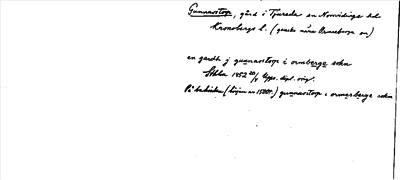 Gunnarstorp, gård i Tjureda sn Norrvidinge hd
Kronobergs l. (ganska nära Ormeberga sn)
en gardh j gunnarstorp i ormberge sokn
Sthlm 1452 20/9 Upps. dipl. orig.
På baksidan (början av 1500t.) gunnarstorp i ormerberge sokn